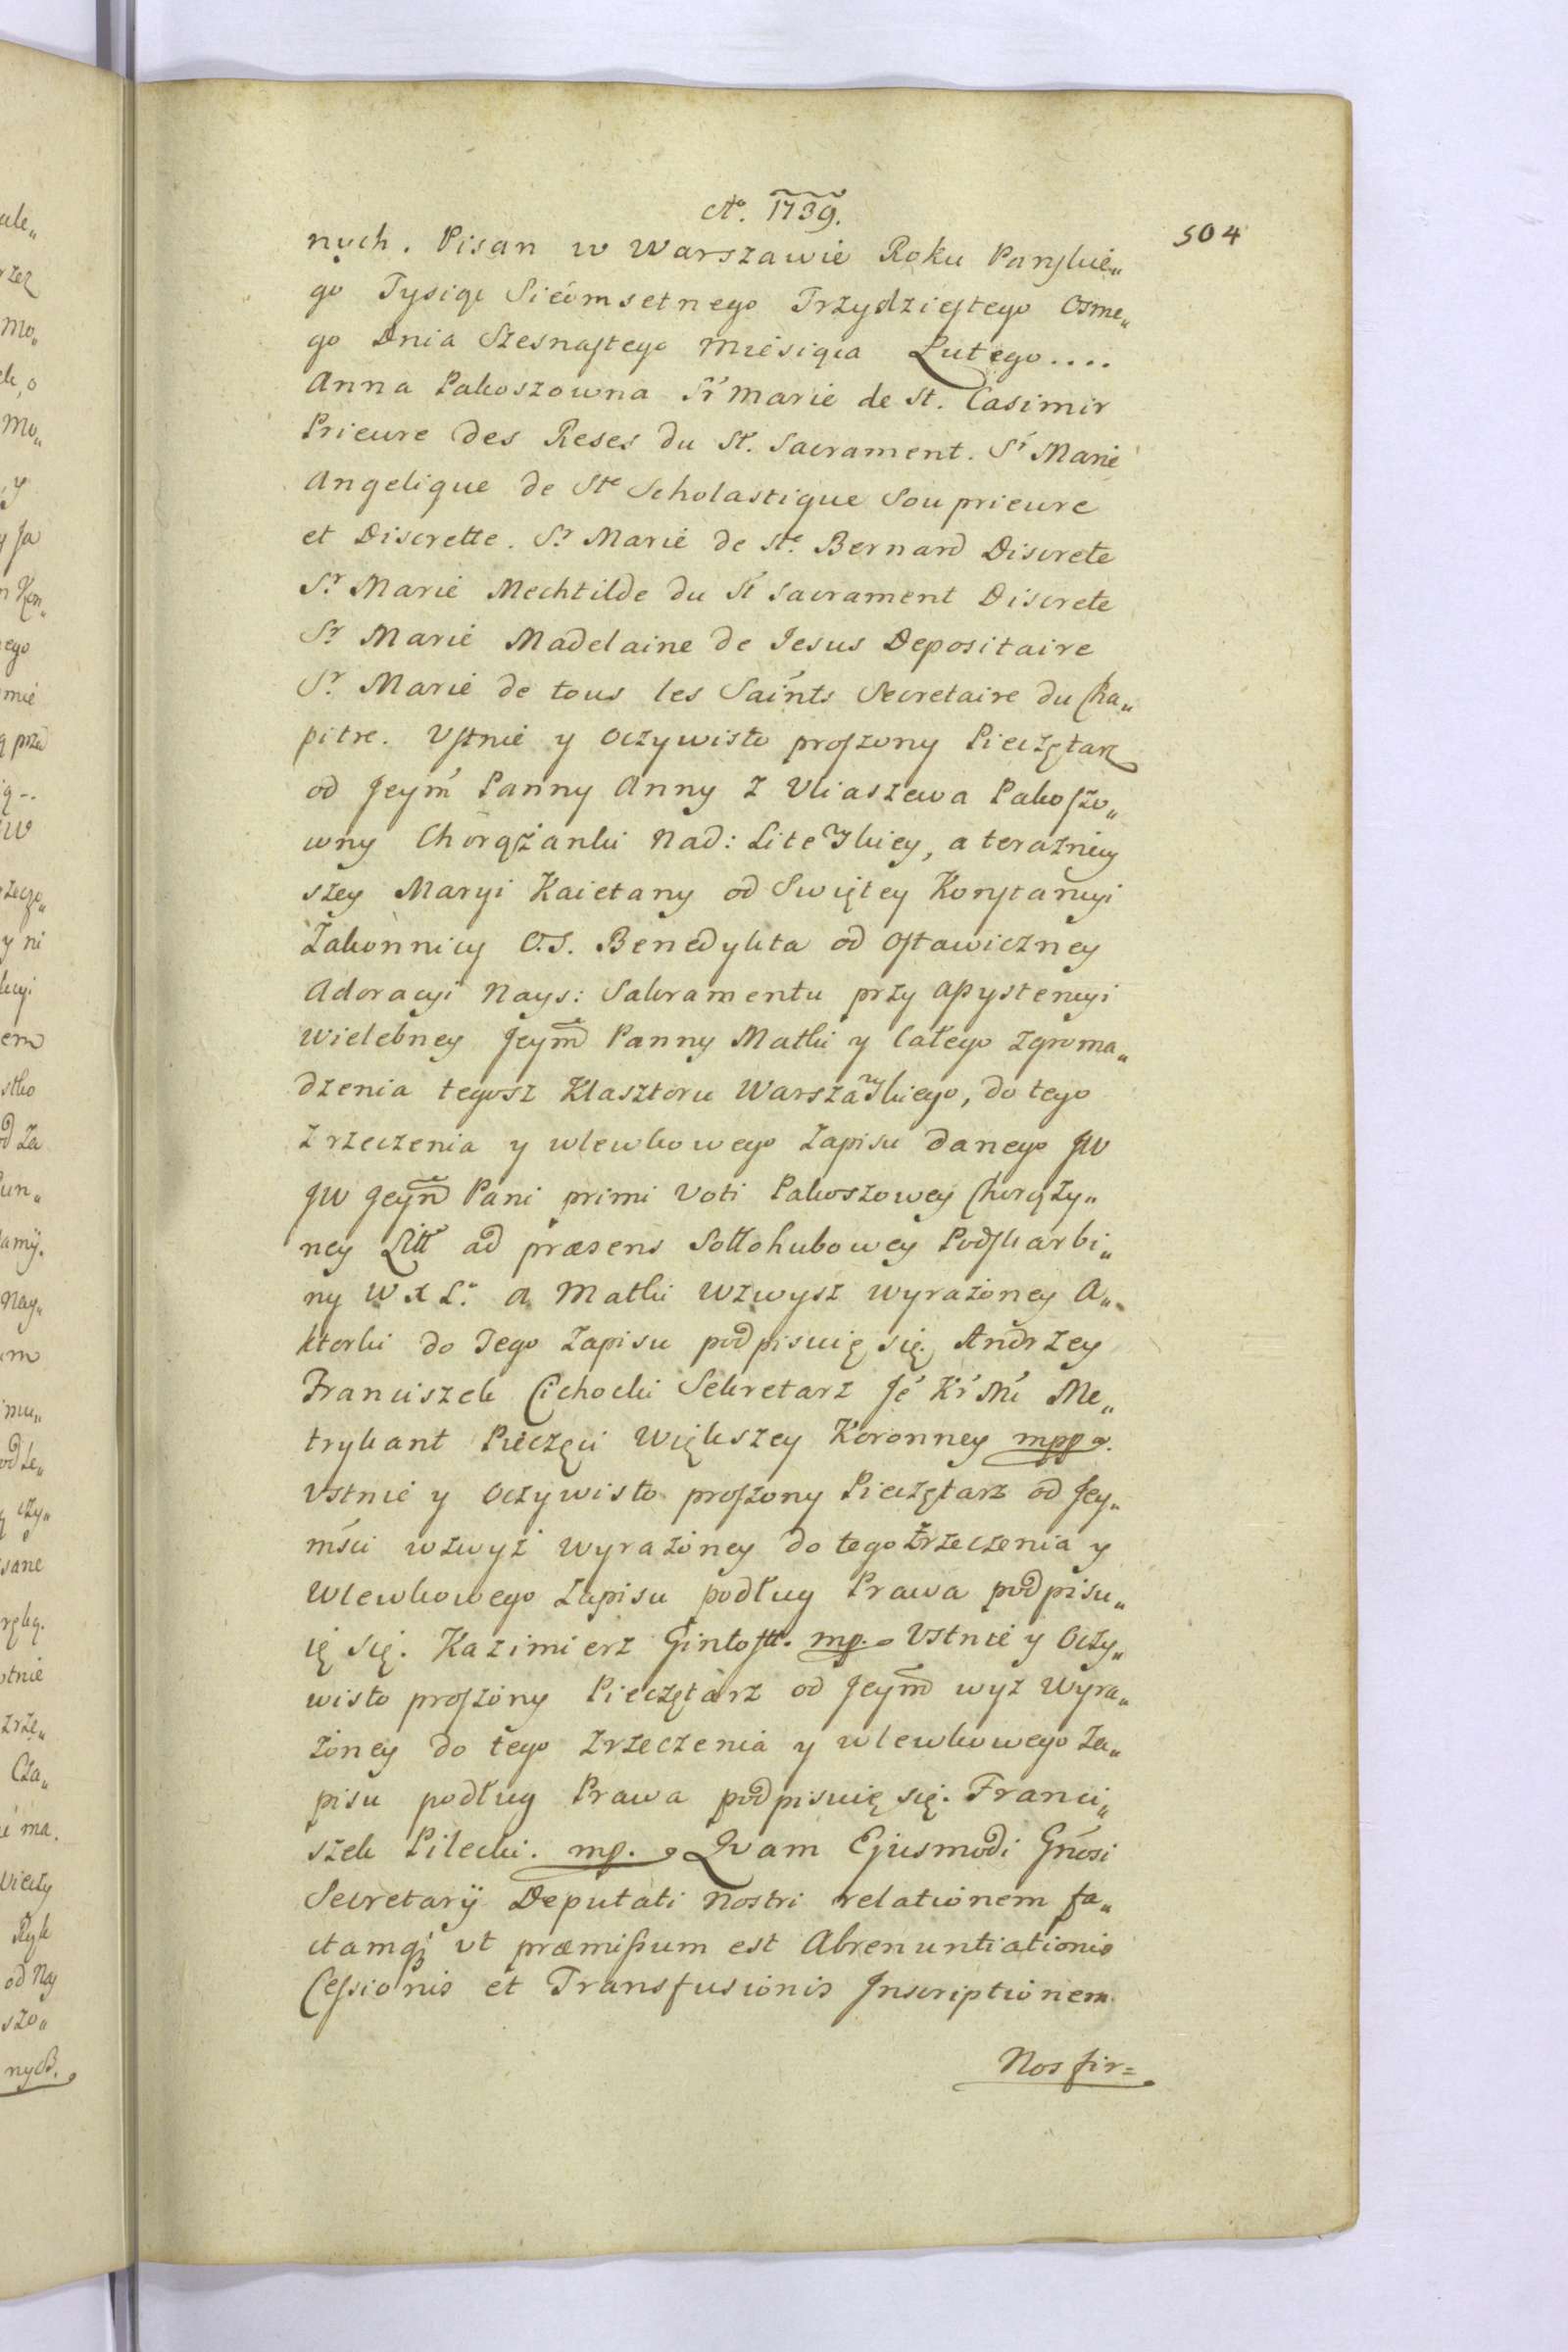 Aō. 1739.
504
nych. Pisan w Warszawie Roku Pańskie„
go Tysiąc Siedmsetnego Trzydziestego Osme„
go Dnia Szesnastego Miesiąca Lutego....
Anna Pakoszowna Sr Marie de St. Casimir
Prieure des Reses du St. Sacrament. Sr Marie
Angelique de Ste Scholastique Souprieure
et Discrette. Sr Marie de Ste. Bernard Discrete
Sr Marie Mechtilde du St Sacrament Discrete
Sr Marie Madelaine de Jesus Depositaire
Sr Marie de tous les Saints Secretaire du Cha„
pitre. Ustnie y Oczywisto proszony Pieczętarz
od Jeym Panny Anny z Pakoszo„
wny Chorążanki Nad: Litewskiey, a teraznieу
szey Maryi Kaietany od Swiętey Konstancyi
Zakonnicy O.S. Benedykta od Ostawiczney
Adoracyi Nays: Sakramentu przy Assystencyi
Wielebney Jeym Panny Matki y Całego Zgroma„
dzenia tegosz Klasztoru Warszawskiego, do tego
Zrzeczenia y wlewkowego Zapisu danego JW
JW Jeym Pani primi Voti Pakoszowey Chorąży„
ney Litt ad præsens Sołłohubowey Podskarbi„
ny W X L. a Matki wzwysz wyrażoney A„
ktorki do Tego Zapisu podpisuię się. Andrzey
Franciszek Cichocki Sekretarz Je Kr Mci Me„
trykant Pieczęci Większey Koronney mpp.
Vstnie y Oczywisto proszony Pieczętarz od Jey„
mści wzwyż wyrażoney do tego Zrzeczenia y
Wlewkowego Zapisu podług Prawa podpisu„
ię się. Kazimierz Gintoftt. mp. Vstnie y Oczy„
wisto proszony Pieczętarz od Jeym wyz Wyra„
żoney do tego Zrzeczenia y wlewkowego Za„
pisu podług Prawa podpisuię się. Franci„
szek Pilecki. mp. Qvam Ejusmodi Gnosi
Secretarij Deputati Nostri relationem fa„
ctamq; vt præmissum est Abrenuntiationis
Cessionis et Transfusionis Inscriptionem
Nos fir=